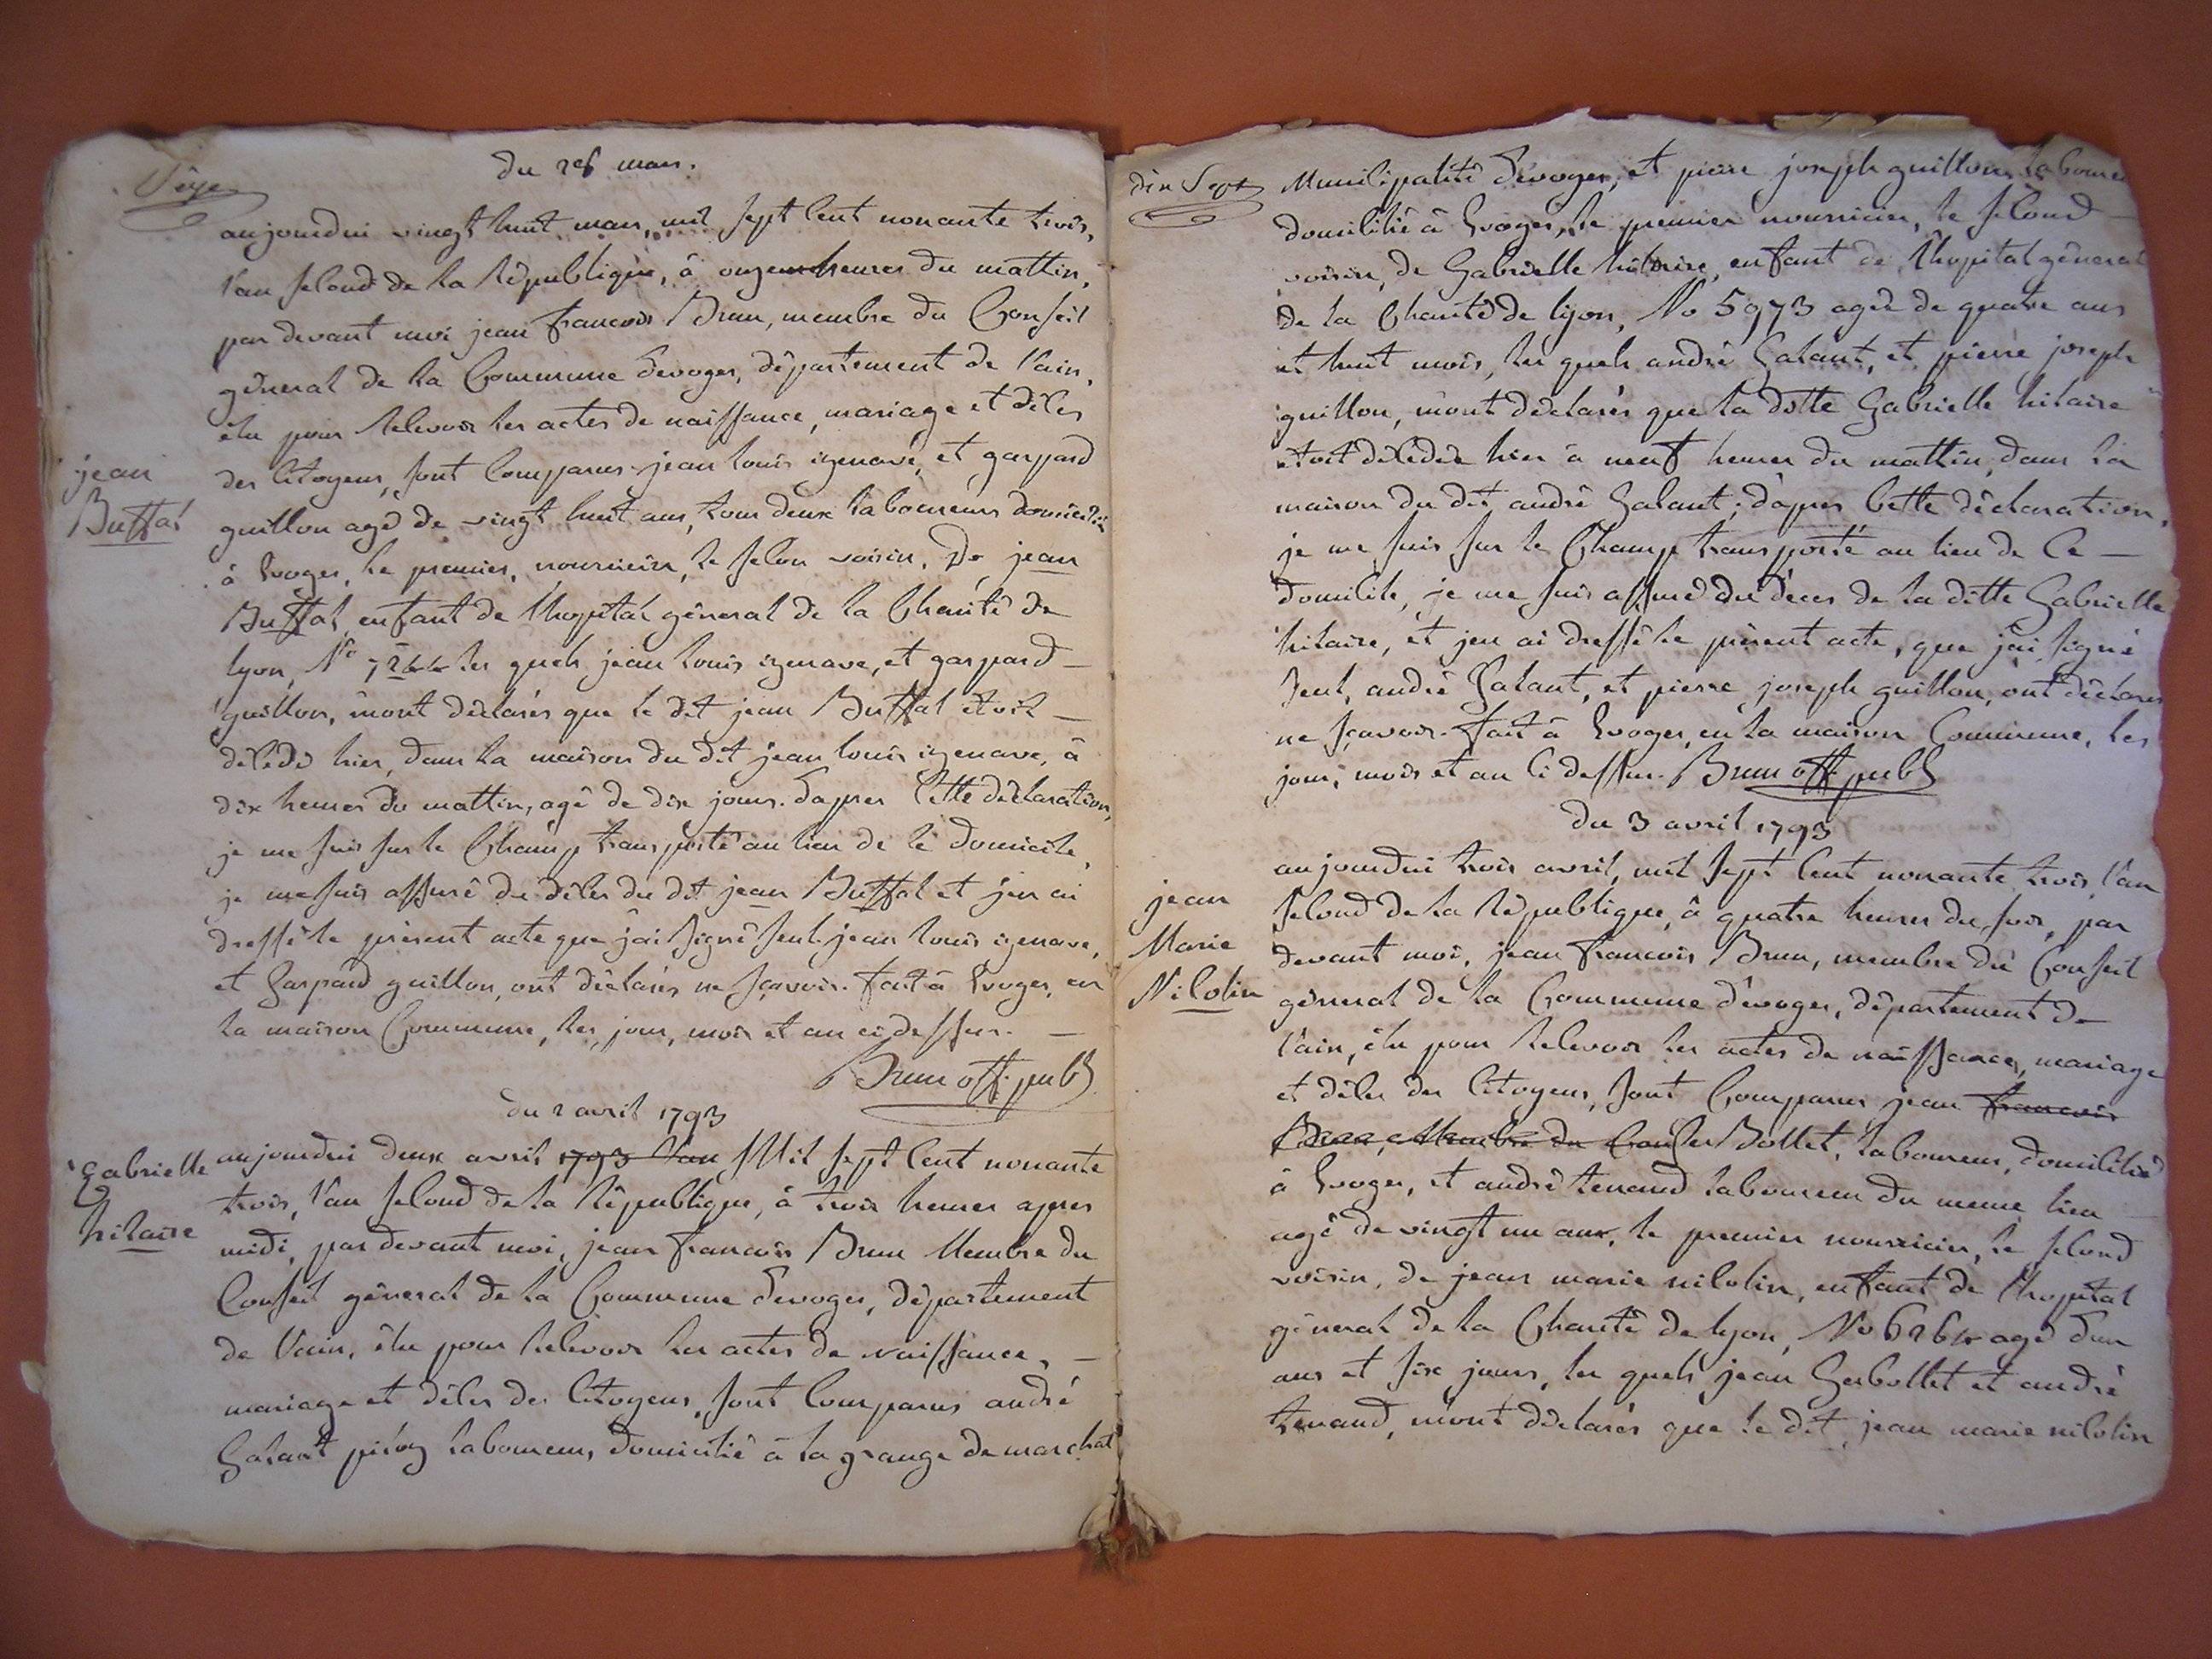 Sèze
du 28 mars.
aujourdui vingt huit mars, mil sept cent nonante trois,
l'an second de la république, à onze heures du mattin,
par devant moi jean francois Brun, membre du Conseil
géneral de la Commune devoges, département de l'ain,
élu pour recevoir les actes de naissance, mariage et décès
des citoyens, sont comparus jean louis izenave, et gaspard
jean
Buffat
guillon agé de vingt huit ans, tous deux laboureurs domiciliés
à Evoges, le premier, nourricier, le secon voisin, De jean
Buffat enfant de l'hopital géneral de la Charité de
lyon, No 7244 les quels jean louis izenave, et gaspard
guillon, m'ont déclarés que le dit jean Buffat étoit
décédé hier, dans la maison du dit jean louis izenave, à
dix heures du mattin, agé de dix jours. d'apres cette déclaration,
je me suis sur le Champ transporté au lieu de ce domicile,
je me suis assuré du décès du dit jean Buffat et j'en ai
dressé le présent acte que j'ai signé seul. jean louis izenave,
et gaspard guillon, ont déclarés ne scavoir. fait à Evoges, en
la maison Commune, les jour, mois et an ci dessus.
Brun off. publ
du 2 avril 1793
gabrielle
hilaire
aujourdui deux avril 1793 l'an Mil sept cent nonante
trois, l'an second de la république, à trois heures apres
midi, par devant moi, jean francois Brun Membre du
Conseil géneral de la Commune devoges, département
de l'ain, élu pour recevoir les actes de naissance,
mariage et décès des citoyens, sont comparus andré
Galant laboureur, domicilié à la grange de marchat
dix Sept
Municipalité d'evoges, et pierre joseph guillon laboureur
domicilié à Evoges, le premier nourricier, le second
voisin, de Gabrielle hilaire, enfant de l'hopital géneral
de la Charité de lyon, No 5973 agée de quatre ans
et huit mois, les quels andré Galant, et pierre joseph
guillon, m'ont déclarés que la ditte Gabrielle hilaire
étoit décédée hier à neuf heures du mattin, dans la
maison du dit andré Galant; d'apres cette déclaration,
je me suis sur le Champ transporté au lieu de ce
domicile, je me suis assuré du décès de la ditte Gabrielle
hilaire, et j'en ai dressé le présent acte, que j'ai signé
seul, andré Galant, et pierre joseph guillon, ont déclarés
ne scavoir. fait à Evoges, en la maison Commune, les
jour, mois et an ci dessus. Brun off. publ
du 3 avril 1793
aujourdui trois avril, mil sept cent nonante trois, l'an
jean
Marie
Nicolin
second de la république, à quatre heures du soir, par
devant moi, jean francois Brun, membre du Conseil
géneral de la Commune d'evoges, département de
l'ain, élu pour recevoir les actes de naissance, mariage
et décès des citoyens, sont comparus jean francois
Brun, Membre du Conseil Gerbollet, laboureur, domicilié
à Evoges, et andré tenand laboureur du meme lieu
agé de vingt un ans, le premier nourricier, le second
voisin, de jean marie nicolin, enfant de l'hopital
géneral de la Charité de lyon, No 6264 agé d'un
ans et six jours, les quels jean Gerbollet et andré
tenand, m'ont déclarés que le dit jean marie nicolin